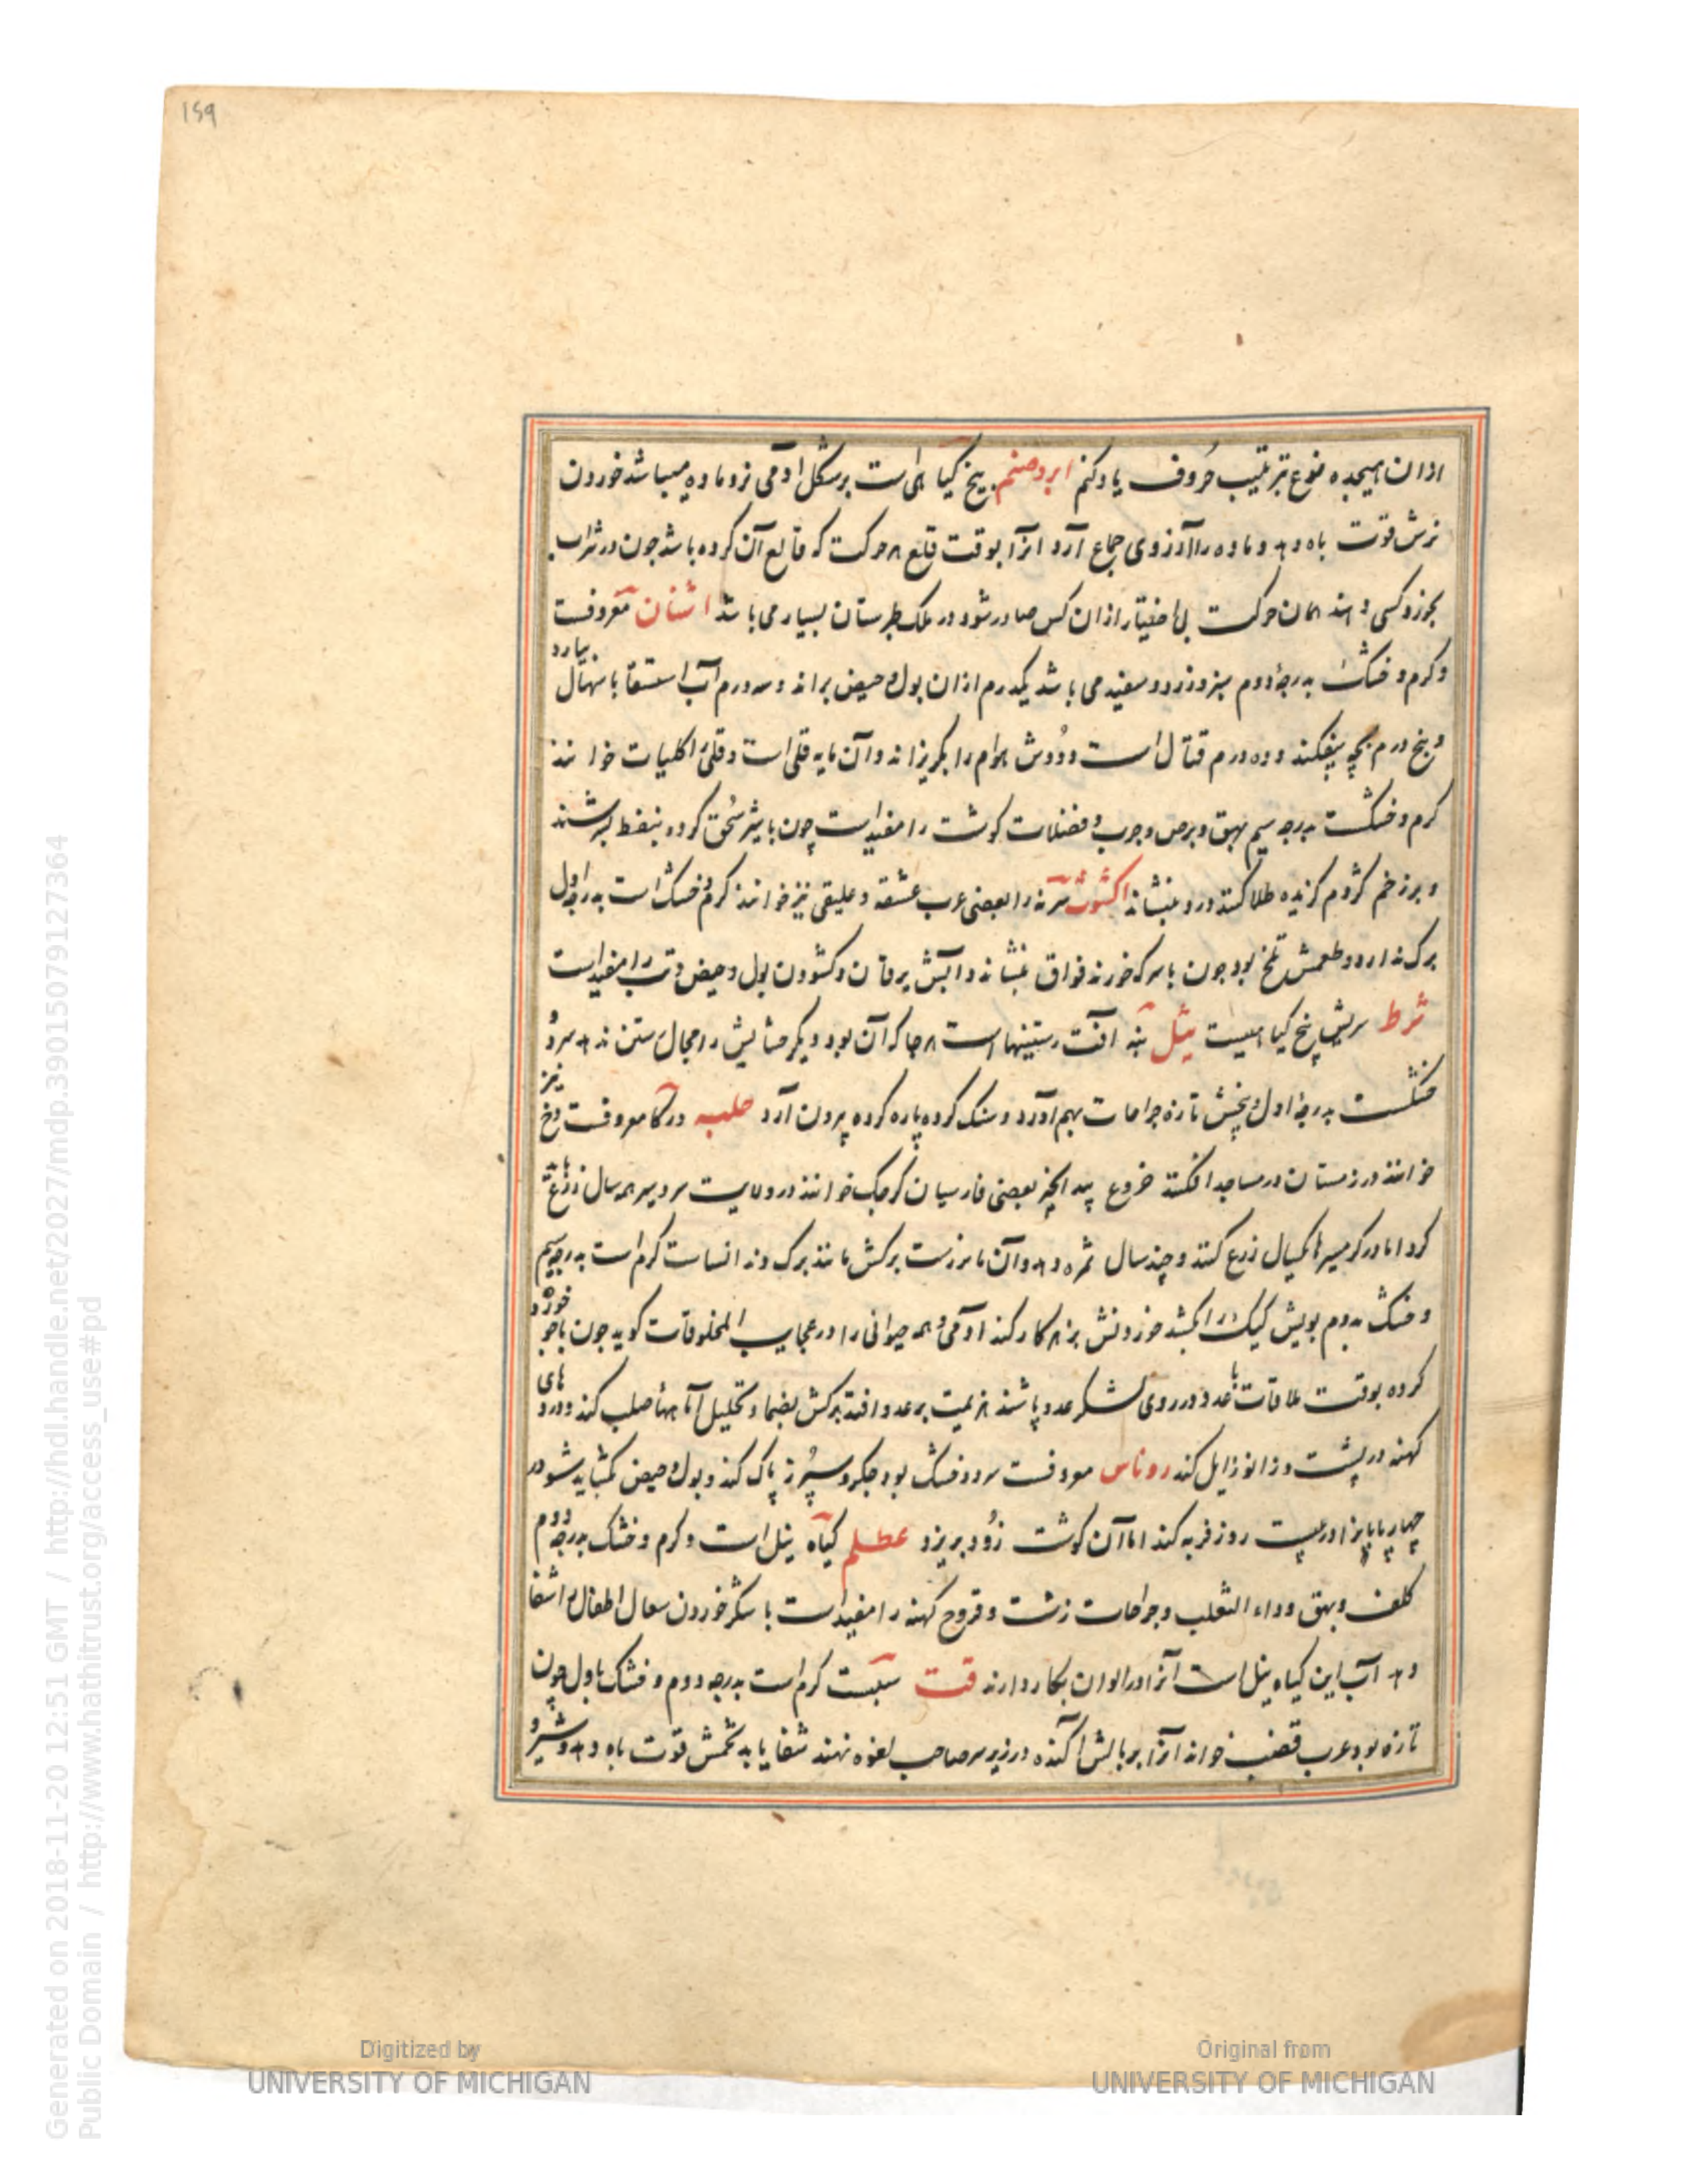 159
ازان هیجده نوع بترتیب حروف یاد کنم ابروصنم بیخ کیا هی است برشکل ادمی نرو ماده میباشد خوردن
نرش قوت باه دهد و ماده را آرزوی جماع آرد انرا بوقت قلع هر حرکت که قالع آن کرده باشد چون در شراب
بخورد کسی دهند همان حرکت بی اختیار ازان کس صادر شود در ملک طبرستان بسیار می باشد اشنان معروفست
و کرم و خشک بدرجۀ دوم سبز و زرد و سفید می باشد یکدرم ازان بول و حیض براند و سه درم آب استسقا باسهال بیارد
و پنج درم بچه بیفکند و ده درم قتال است و دودش هوام را بکریزاند و آن مایه قلی است و قلی را کلیات خوانند
کرم و خشکست بدرجه سیم بهق و برص و جرب و فضلات کوشت را مفید است چون با شیر سحق کرده بنفط بسرشند
و بر زخم کژدم کزیده طلا کنند درد بنشاند اکشوث را بعضی عرب عشقه و علیقی نیز خوانند کرم و خشک است بدرجه اول
برک ندارد و طعمش تلخ بود چون با سرکه خورند فواق بنشاند و آبش یرقان و کشودن بول و حیض و تب را مفید است
ثرط سریش پنج کیا هیست ثیل بنه آفت رستنیها است هر جا که آن بود دیکر حشایش را مجال رستن ندهد سرد و
خشکست بدرجۀ اول و بیخش تازه جراحات بهم آورد و سنک کرده پاره کرده بیرون آرد حلبه در کا معروفست و نخ نیز
خوانند در زمستان در مساجد افکنند خروع بید انجیر بعضی فارسیان کرچک خوانند در ولایت سردسیر همه سال زرع باید
کرد اما در کرمسیر ها یکسال زرع کنند و چند سال ثمره دهد و آن برزست برکش مانند برک کرم است بدرجه سیم
و خشک بدوم بویش کیک را بکشد خوردنش بزهر کار کند ادمی و همه حیوانی را در عجایب المخلوقات کوید چون با خود
کرده بوقت ملاقات با عدو در روی لشکر عدو پاشند هزیمت بر عدو افتد برکش بضماد تحلیل آماسهاء صلب کند و درد های
کهنه در پشت و زانو زایل کند روناس معروفست سرد و خشک بود جکر و سپرز پاک کند و بول و حیض بکشاید
چهارپایانرا در بیست روز فربه کند اما آن کوشت زود بریزد عظلم کیاه نیل است و کرم و خشک بدرجه دوم
کلف و بهق و داء الثعلب و جراحات زشت و قروح کهنه را مفید است با شکر خوردن سعال اطفال را شفا
دهد آب این کیاه نیل است آنرا در الوان بکار دارند قت سبست کرم است بدرجه دوم و خشک باول چون
تازه بود عرب قضب خواند انرا بر بالش آکنده در زیر سر صاحب لقوه نهند شفا یابد تخمش قوت باه دهد و شیر و
Generated on 2018-11-20 12:51 GMT / http://hdl.handle.net/2027/mdp.39015079127364
Public Domain / http://www.hathitrust.org/access_use#pd
Digitized by
UNIVERSITY OF MICHIGAN
Original from
UNIVERSITY OF MICHIGAN